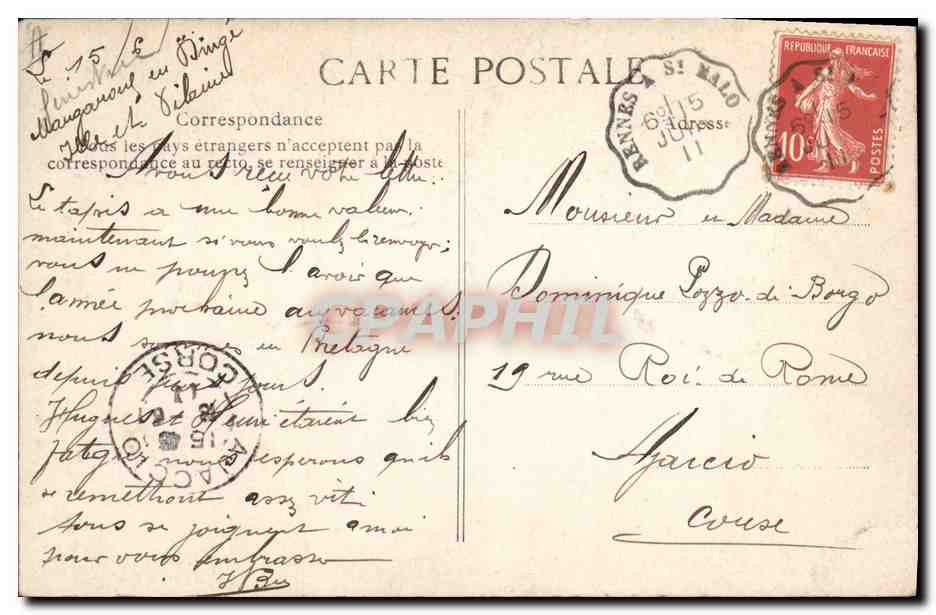 Le 15
Manganoux en Dingé
Ille et Vilaine
CARTE POSTALE
Correspondance
Tous les pays étrangers n'acceptent pas la
correspondance au recto, se renseigner à la poste
Adresse
RENNES A St MALO
15
JUI
11
RENNES A St
15
11
REPUBLIQUE FRANÇAISE
10
POSTES
Nous recu votre lettre.
Le tapis a une bonne valeur
maintenant si vous voulez le renvoyer;
vous ne pourrez l'avoir que
l'année prochaine aux vacances.
nous sommes en Bretagne
depuis jours.
Hugues et étaient bien
fatigués nous esperons qu'ils
se remettront assez vite
tous se joignent a moi
pour vous embrasser
Monsieur et Madame
Dominique Pozzo di Borgo
19 rue Roi de Rome
Ajaccio
Corse
AJACCIO
CORSE
CPAPHIL